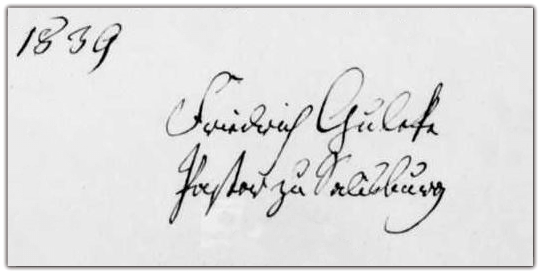 1839
Friedrich Guleke
Pastor zu Salisburg